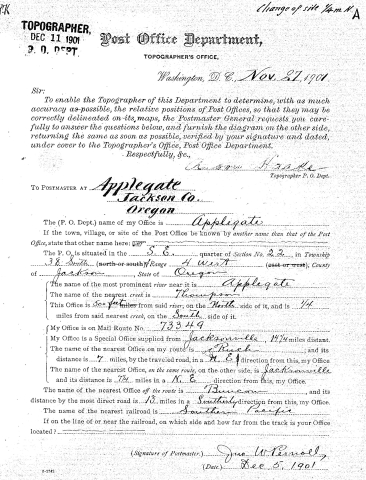 Change of site 1/4 m N.
A
TOPOGRAPHER,
DEC 11 1901
P. O. DEPT.
Post Office Department,
TOPOGRAPHER'S OFFICE,
Washington, D. C., Nov. 27, 1901
Sir:
To enable the Topographer of this Department to determine, with as much
accuracy as possible, the relative positions of Post Offices, so that they may be
correctly delineated on its maps, the Postmaster General requests you care-
fully to answer the questions below, and furnish the diagram on the other side,
returning the same as soon as possible, verified by your signature and dated,
under cover to the Topographer's Office, Post Office Department.
Respectfully, &c.,
Topographer P. O. Dept.
TO POSTMASTER AT Applegate
Jackson Co.
Oregon
The (P. O. Dept.) name of my Office is Applegate
If the town, village, or site of the Post Office be known by another name than that of the Post
Office, state that other name here:
The P. O. is situated in the S. E. quarter of Section No. 22, in Township
38 South (north or south), Range 4 West (east or west), County
of Jackson, State of Oregon
The name of the most prominent river near it is Applegate
The name of the nearest creek is Thompson
This Office is from said river, on the North side of it, and is 1/4
miles from said nearest creek, on the South side of it.
My Office is on Mail Route No. 73349
My Office is a Special Office supplied from Jacksonville, miles distant.
The name of the nearest Office on my route is Ruch, and its
distance is 7 miles, by the traveled road, in a N. E. direction from this, my Office
The name of the nearest Office, on the same route, on the other side, is Jacksonville
and its distance is miles in a N. E. direction from this, my Office.
The name of the nearest Office of the route is, and its
distance by the most direct road is 13 miles in a Southerly direction from this, my Office.
The name of the nearest railroad is Southern Pacific
If on the line of or near the railroad, on which side and how far from the track is your Office
located?
(Signature of Postmaster.) Jno. W.
(Date.) Dec 5, 1901